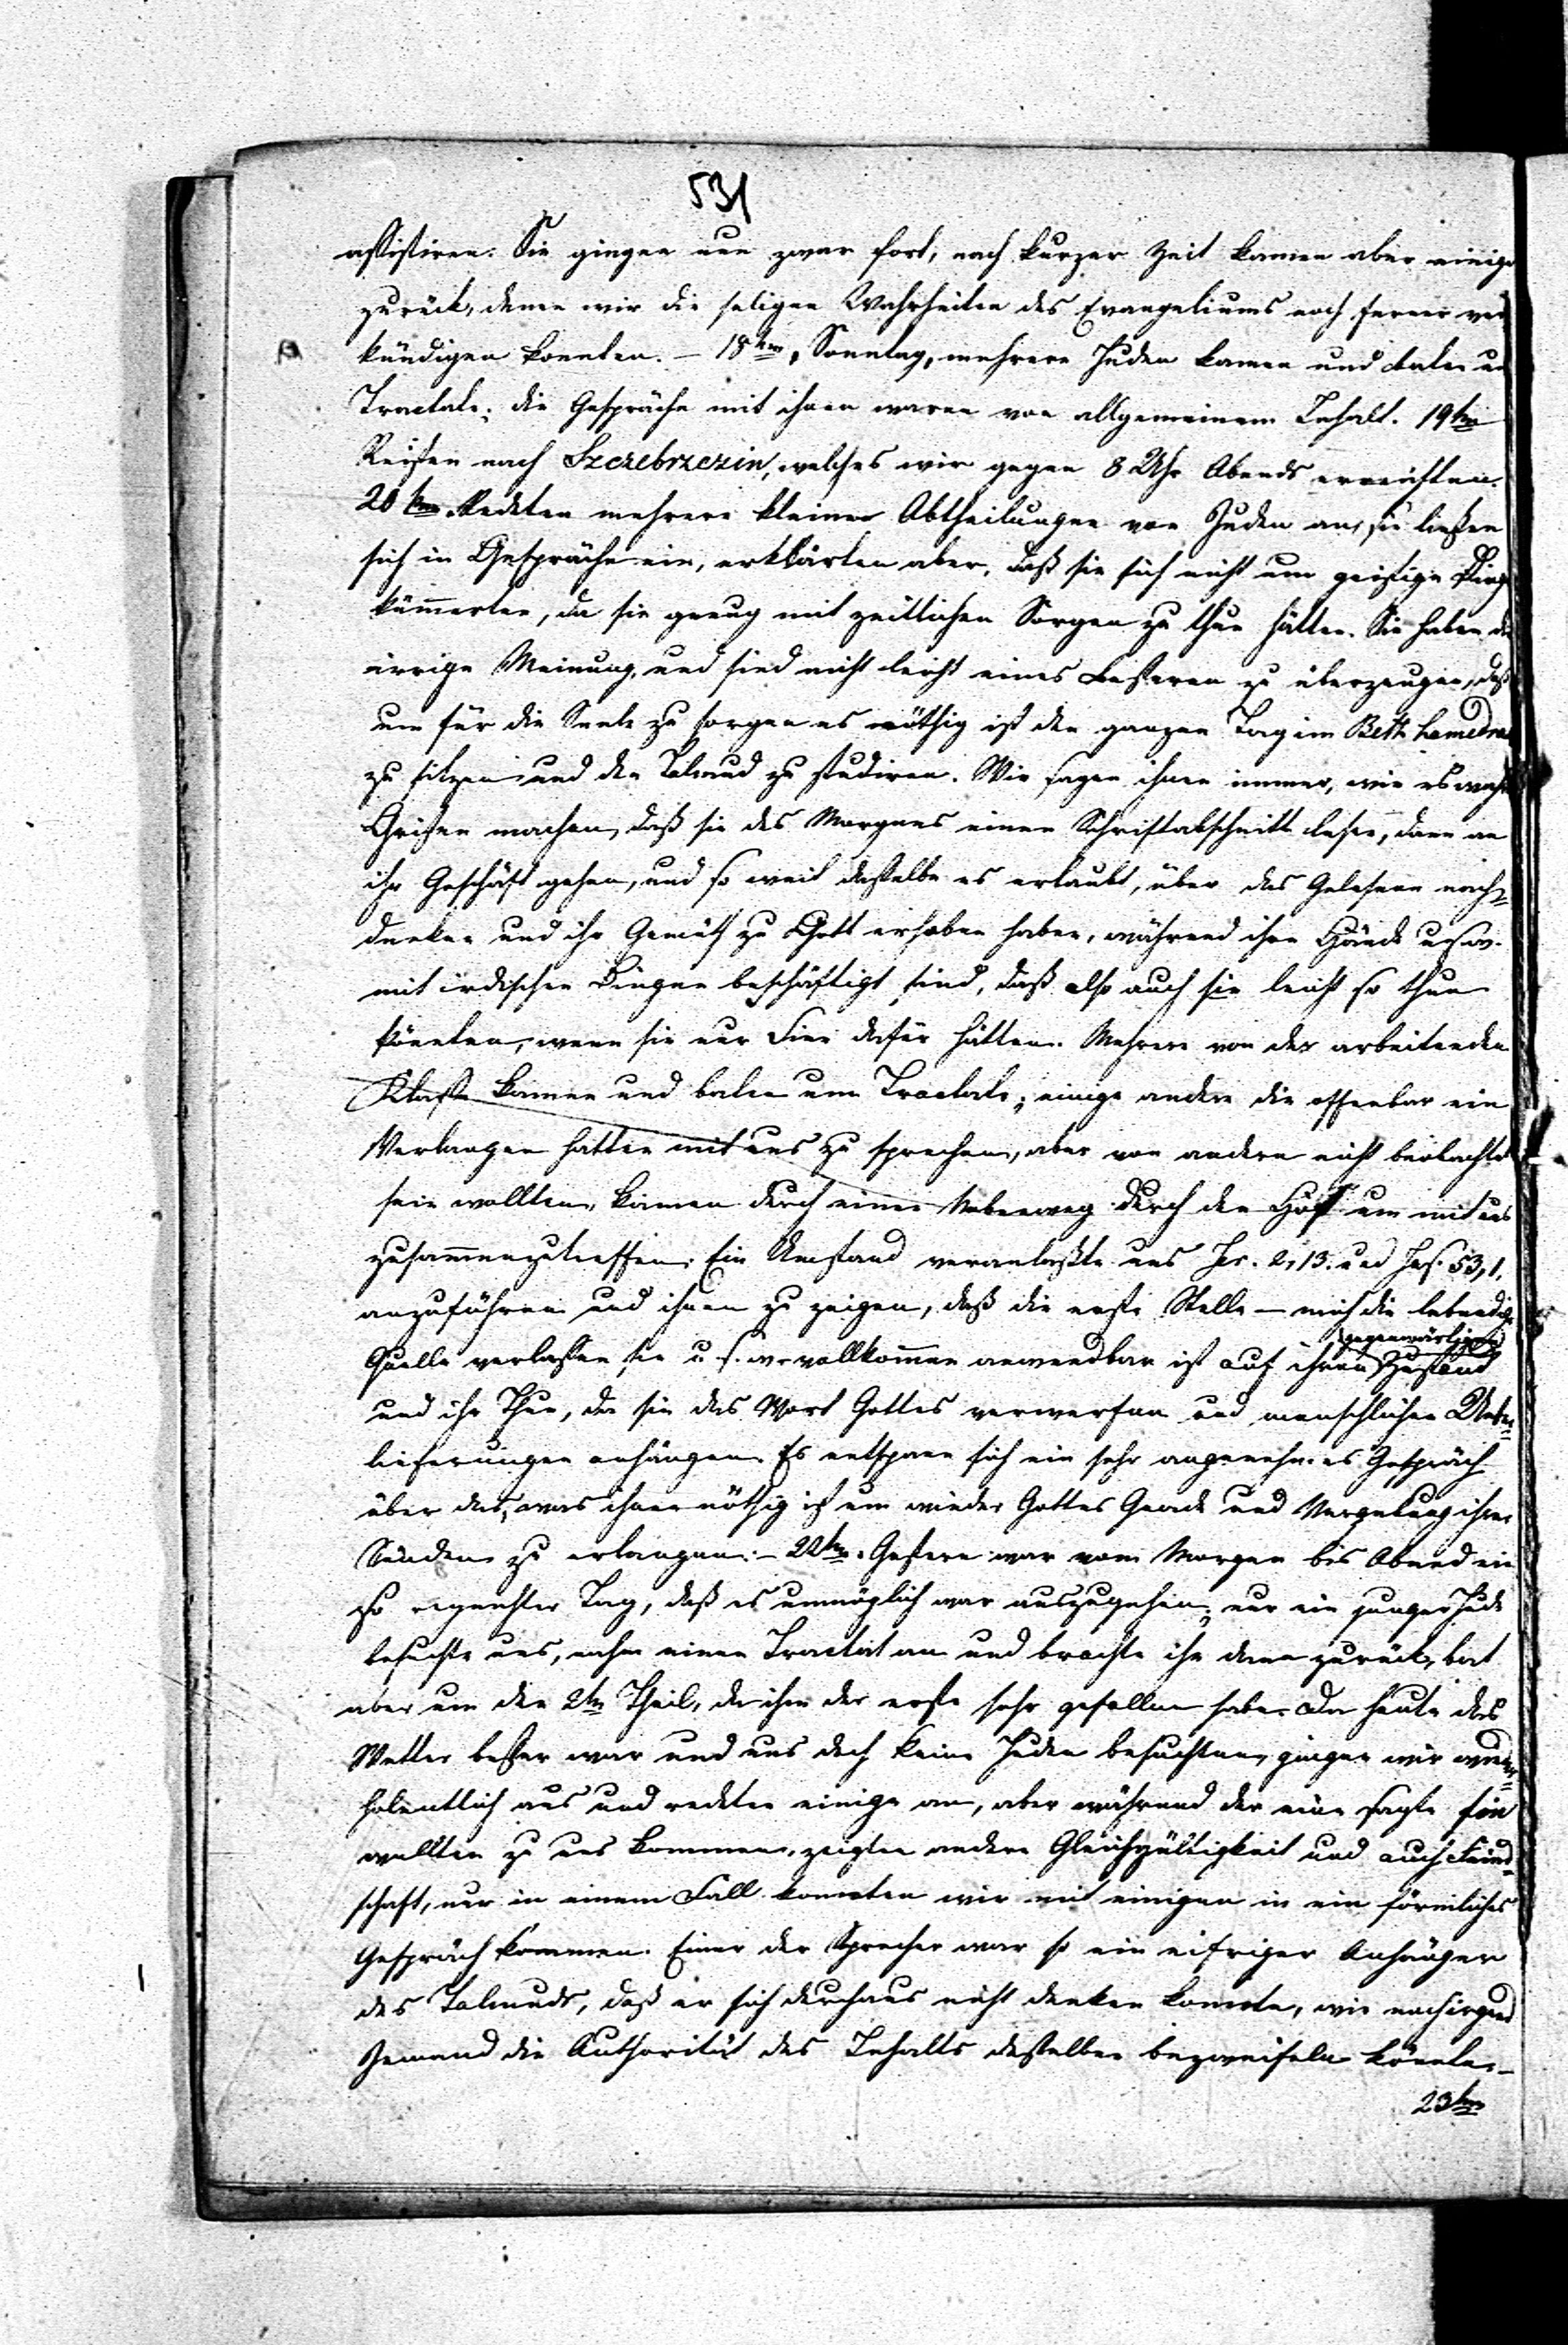 531
assistiren. Sie gingen nun zwar fort, nach kurzer Zeit kamen aber einige
zurück, denen wir die seligen Wahrheiten des Evangeliums noch ferner ver
kündigen konnten. – 18ten, Sonntag, mehrere Juden kamen und baten um
Tractate; die Gespräche mit ihnen waren von allgemeinem Inhalt. 19ten
Reisen nach Szczebrzeszin, welches wir gegen 8 Uhr Abends erreichten.
20ten. Redeten mehrere kleine Abtheilungen von Juden an, sie ließen
sich in Gespräche ein, erklärten aber, daß sie sich nicht um geistige Dinge
kümmerten, da sie genug mit zeitlichen Sorgen zu thun hätten. Sie haben die
irrige Meinung, und sind nicht leicht eines Besseren zu überzeugen, daß
um für die Seele zu sorgen es nöthig ist den ganzen Tag im Beth hamedras
zu sitzen und den Talmud zu studiren. Wir sagen ihnen immer, wie es wahre
Christen machen, daß sie des Morgens einen Schriftabschnitt lesen, dann an
ihr Geschäft gehen, und so weit dasselbe es erlaubt, über das Gelesene nach=
denken und ihr Gemüth zu Gott erhoben haben, während ihre Hände u.s.w.
mit irdischen Dingen beschäftigt sind, daß also auch sie leicht so thun
könnten, wenn sie nur Sinn dafür hätten. Mehrere von der arbeitenden
Klasse kamen und baten um Tractate; einige andere die offenbar ein
Verlangen hatten mit uns zu sprechen, aber von andern nicht beobachtet
sein wollten, kamen durch einen Nebenweg durch den Hof um mit uns
zusammenzutreffen. Ein Umstand veranlaßte uns Jer. 2, 13. und Jes. 53, 1.
anzuführen und ihnen zu zeigen, daß die erste Stelle – mich die lebendige
Quelle verlassen sie u.s.w. vollkommen anwendbar ist auf ihren gegenwärtigen Zustand
und ihr Thun, da sie das Wort Gottes verwerfen und menschlichen Ueber=
lieferungen anhängen. Es entspann sich ein sehr angenehmes Gespräch
über das, was ihnen nöthig ist um wieder Gottes Gnade und Vergebung ihrer
Sünden zu erlangen. – 22ten. Gestern war vom Morgen bis Abend ein
so regnichter Tag, daß es unmöglich war auszugehen; nur ein junger Jude
besuchte uns, nahm einen Tractat an und brachte ihn dann zurück, bat
aber um den 2ten Theil, da ihm der erste sehr gefallen habe. Da heute das
Wetter besser war und uns doch keine Juden besuchten, gingen wir wieder=
holentlich aus und redeten einige an, aber während der eine sagte sie
wollten zu uns kommen, zeigten andere Gleichgültigkeit und auch Feind=
schaft, nur in einem Fall konnten wir mit einigen in ein förmliches
Gespräch kommen. Einer der Sprecher war so ein eifriger Anhänger
des Talmuds, daß er sich durchaus nicht denken konnte, wie noch irgend
Jemand die Authorität des Inhalts desselben bezweifeln könnte. –
23ten